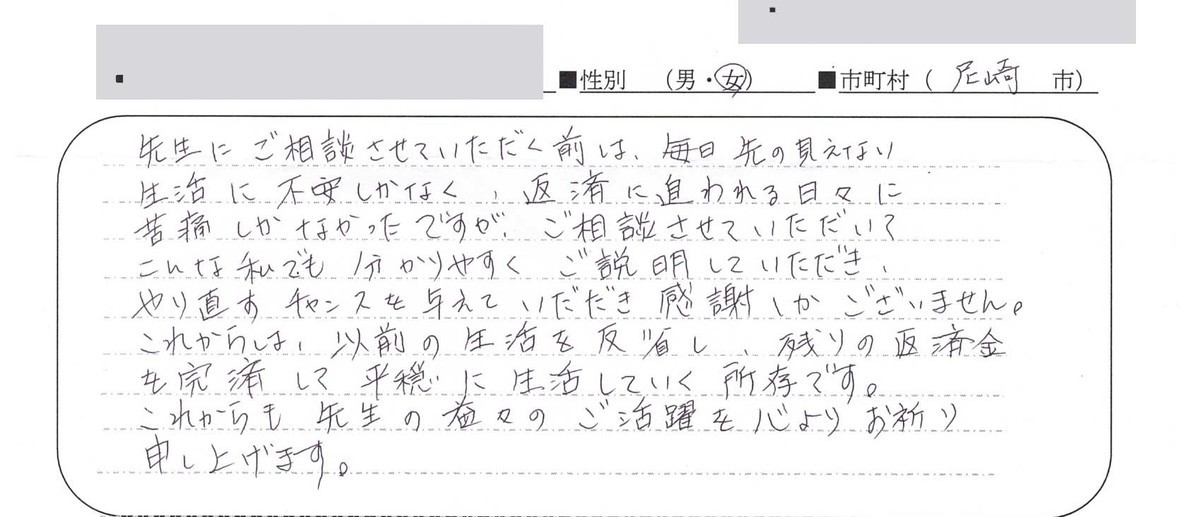 ■性別 （男・女） ■市町村（ 尼崎 市）
先生に ご相談させていただく前は、毎日 先の見えない
生活に 不安しかなく、返済に追われる日々に
苦痛しかなかったですが、ご相談させていただいて
こんな私でも 分かりやすく ご説明していただき、
やり直す チャンスを与えて いただき 感謝しか ございません。
これからは、以前の生活を反省し、残りの返済金
を完済して 平穏に 生活していく 所存です。
これからも 先生の益々の ご活躍を心より お祈り
申し上げます。